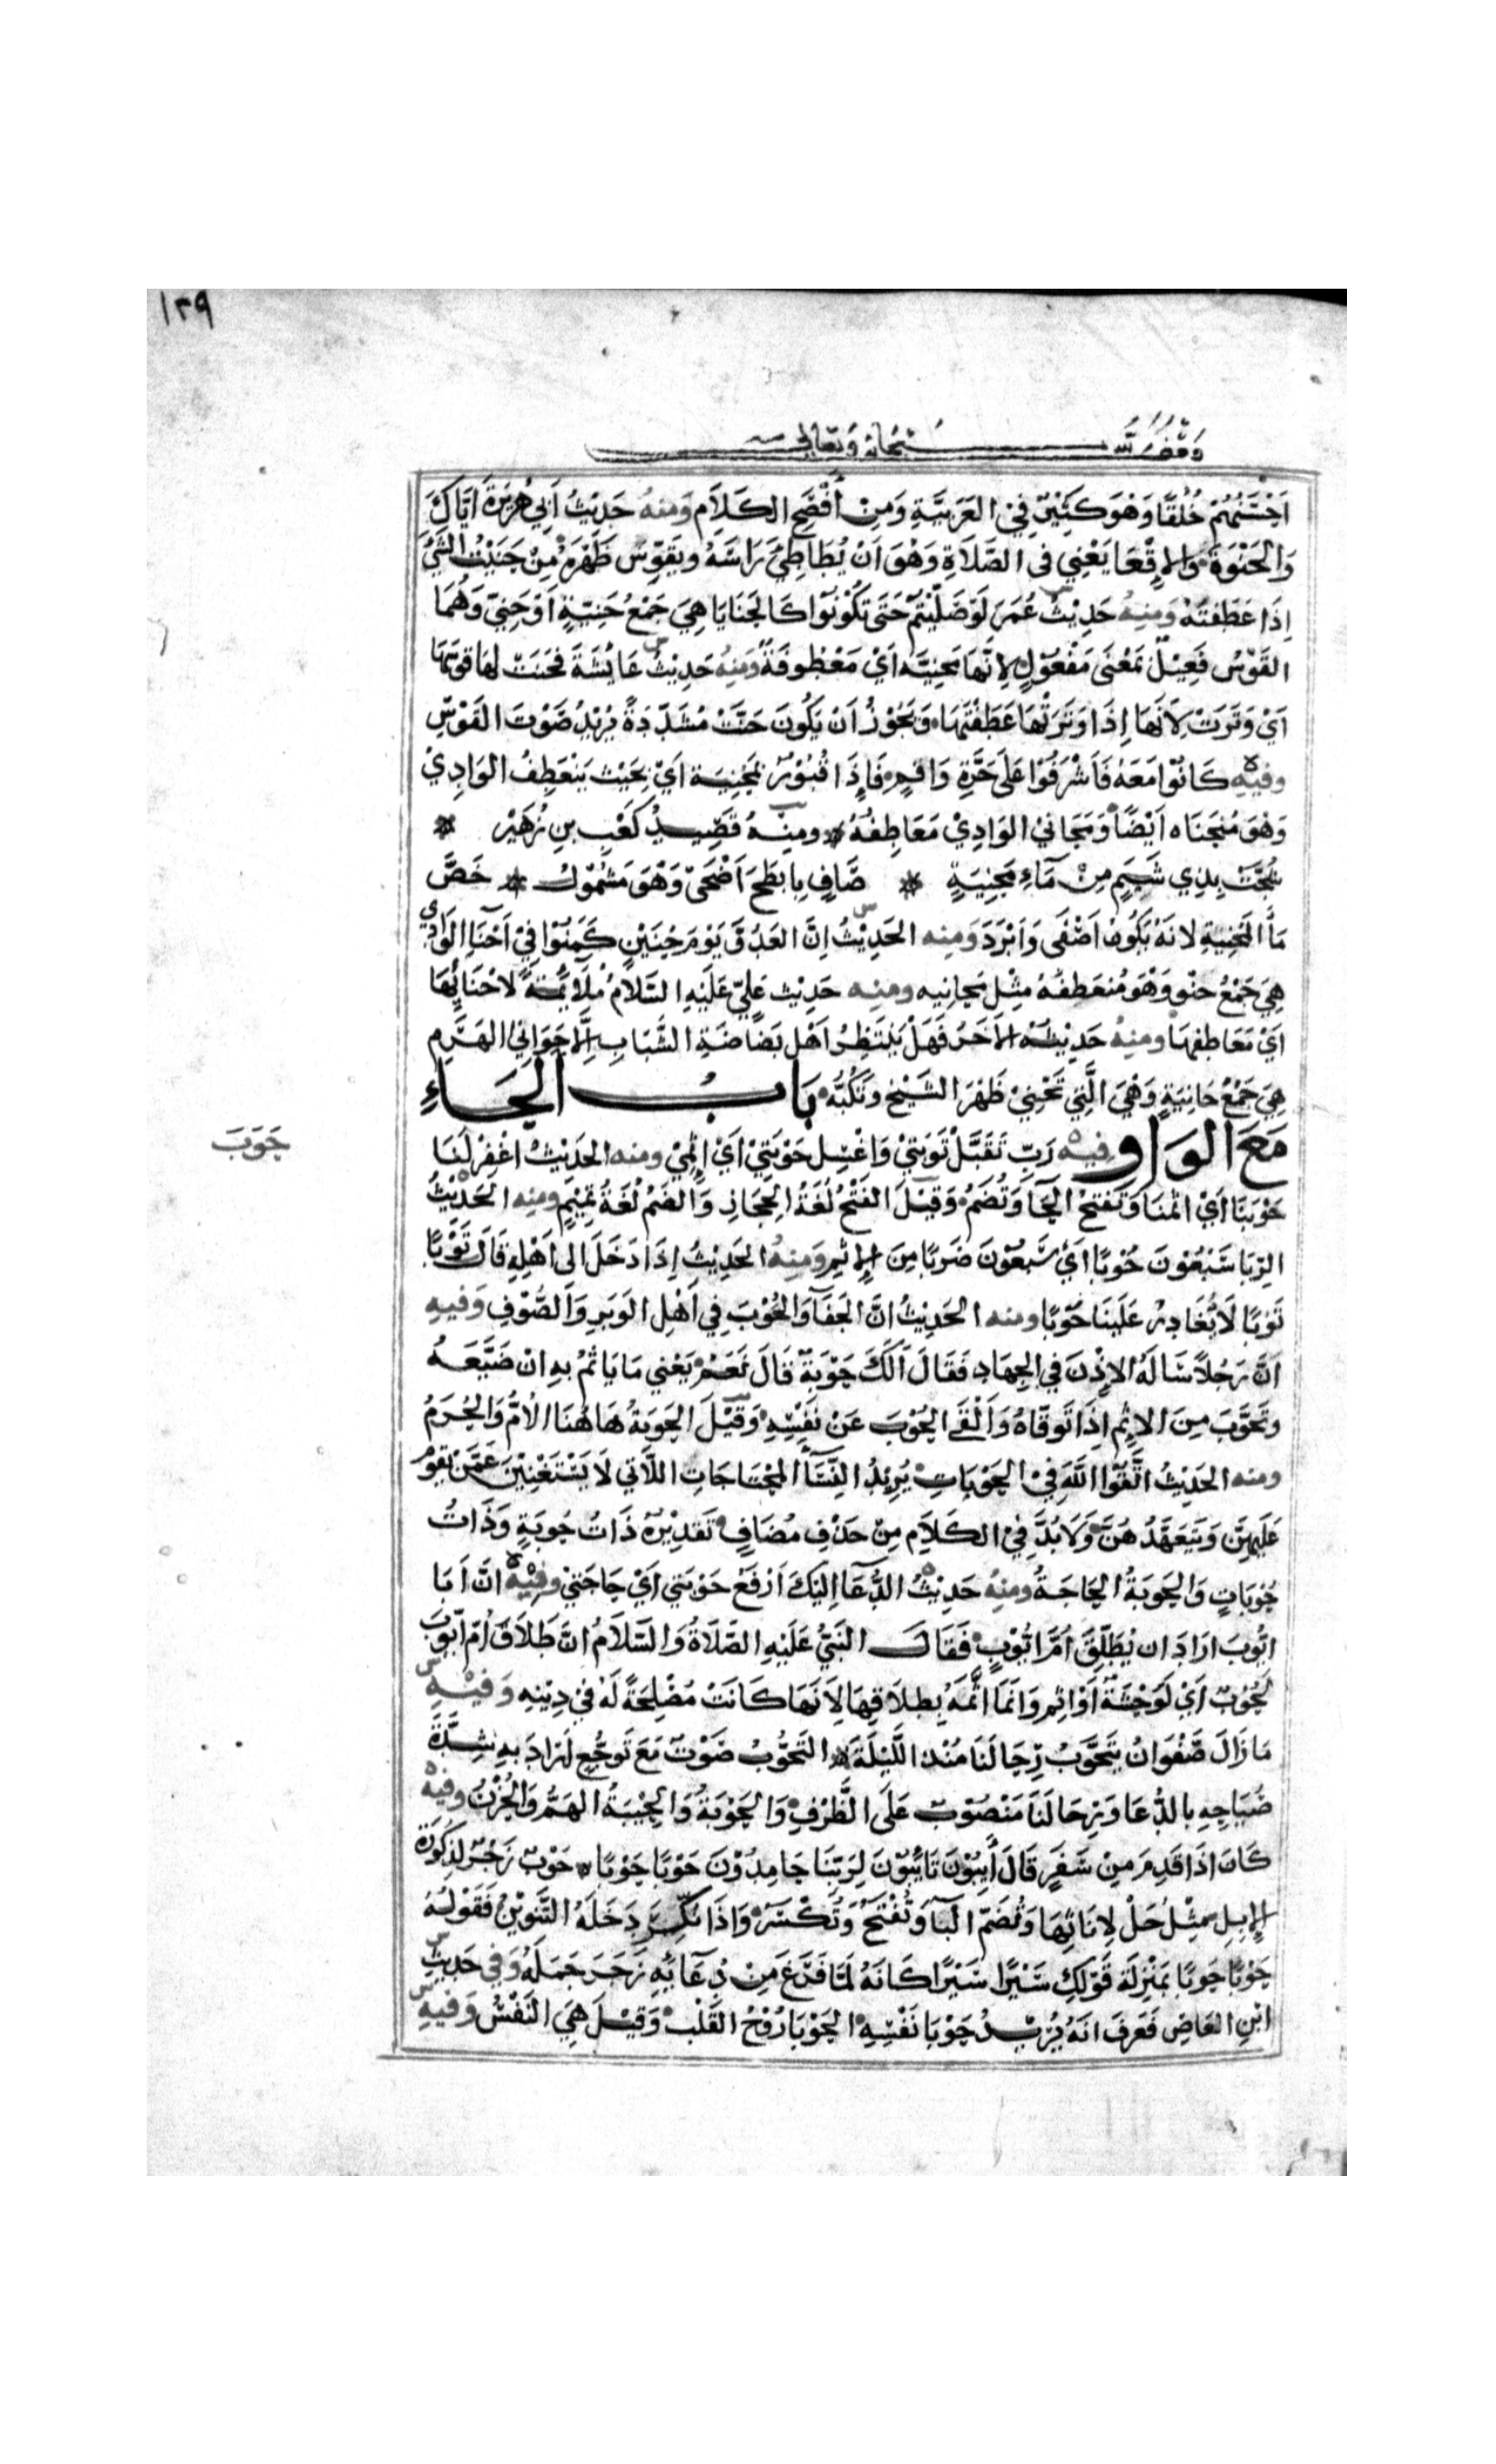 ١٣٩
وقف لله سبحانه وتعالى
احسنهم خُلُقًا وَهْوَ كَثِيْرٌ فِيْ العَرَبيَّةِ وَمِنْ أَفْصَحِ الكَلَامِ وَمنهُ حَدِيْثُ اَبي هُرَيْرَةَ اَيَّاكَ
وَالحَنْوَةَ وَالاِقْعَا يَعْنِي في الصَّلَاةِ وَهْوَ اَنْ يُطَاطِئَ رَاسَهُ ويَقَوِّسَ ظَهْرَهُ مِنْ حَنَيْتُ الشَّيْ
اِذَا عَطَفتَهُ وَمِنهُ حَدِيْثُ عُمَرَ لَوْ صَلَّيْتُمْ حَتَى تَكُوْنُوْا كَالحَنَايَا هِيَ جَمْعُ حَنِيَّةٍ اَوْ حَنِيٍّ وَهُمَا
القَوْسُ فَعِيْلٌ بَمَعْنَى مَفْعُوْلٍ لِاَنَّهَا مَحنِيَّه اَيْ مَعْطُوفَةٌ وَمِنهُ حَدِيْثُ عَايْشَةَ فحَنَتْ لهَا قوسَهَا
اَيْ وَتَرَتْ لِاَنَّهَا اِذَا وَتَرَتْهَا عَطَفْتَهَا وَيَجُوْزُ اَنْ يَكُونَ حَنَّتْ مُشَدَّدَةً يُرِيْدُ صَوْتَ القَوْسِ
وفيهِ كَانُوْا مَعَهُ فَاَشْرَفُوْا عَلَى حَرَّةِ وَاقِمٍ فَاِذَا قُبُوْرٌ بَمَحْنِيَة اَيْ بَحَيْثُ يَنْعَطِفُ الوَادِيْ
وَهْوَ مُنْحَنَاه اَيْضًا وَمَحَانيْ الوَادِيْ مَعَاطِفُهُ ومنهُ قَصِيدُ كَعْبِ بنِ زُهَيْر
شُجَّتْ بِذِي شَبَمٍ مِنْ مَآءِ مَحْنِيَةٍ صَافٍ بِابطَحَ اَضْحَى وَهْوَ مَشْمُوْلُ خَصَّ
مَآَ المَحْنِيَةِ لانَهُ يَكُونُ اَصْفَى وَاَبْرَدَ وَمِنه الحَدِيْثُ اِنَّ العَدُوَّ يَوْمَ حُنَيْنٍ كَمَنُوْا فيْ اَحْنَآِ الوَادِي
هِيَ جَمْعُ حنْوٍ وَهْوَ مُنعَطِفُهُ مِثْل مَحانِيه ومنه حَدِيْث عَلِيّ عَلَيْهِ السَّلَامُ مُلَآئَمَةً لاحْنَآئِهَا
اَيْ مَعَاطِفهَا ومِنهُ حَدِيْثُهُ الاَخَرُ فَهَلْ يَنْتَظِرُ اَهْل بَضَاضَةِ الشَّبَابِ اِلَّا حَوَانيْ الهَرَمِ
هِيَ جَمْعُ حَانِيَةٍ وَهْيَ الَّتِي تَحْنيْ ظَهْرَ الشَيْخ وتَكُبُّه بَابُ الحَاءِ
مَعَ الوَاوِ فيه رَبِّ تَقَبَّلْ تَوْبَتيْ وَاغْسِل حَوْبَتيْ اَيْ اِثْميْ ومنه الحَدِيْثُ اغفِرْ لَنَا
حَوَبَ
حَوْبَتَا اَيْ اثْمنَا وَتُفْتَحُ الحَآ وَتُضَمُّ وَقِيْلَ الفَتْحُ لُغَةُ الحِجَازِ وَالضَمُّ لُغَةُ تَمِيْمٍ ومنه الحَدِيْثُ
الرِّبَا سَبْعُوْنَ حُوْبًا اَيْ سَبْعُوْنَ ضَربًا مِنَ الاِثْمِ وَمِنهُ الحَدِيْثُ اِذَا دَخَلَ الى اَهْلِهِ قَالَ تَوْبًا
تَوبًا لَا يُغَادِرُ عَلَيْنَا حَوْبًا ومنه الحَدِيْثُ اِنَّ الجَفَآ وَالحُوْبَ فِي اَهْلِ الوَبَرِ وَالصُّوْفِ وَفيهِ
اَنَّ رَجُلًا سَالَهُ الاِذْنَ في الجِهَادِ فَقَالَ اَلَكَ حَوْبَةٌ قَالَ نَعَمْ يَعْني مَا يَاثمُ بهِ اِنْ ضَيَّعَهُ
وتَحَوَّبَ مِنَ الاثِمِ اِذَا تَوقَّاهُ وَاَلْقَى الحُوْبَ عَنْ نَفْسِهِ وَقِيْلَ الحَوبَةُ هَاهُنَا الاُمُّ وَالحُرَمُ
ومنه الحَدِيْثُ اتَّقُوْا اللَّهَ فيْ الحَوْبَاتِ يُرِيْدُ النِّسَآ المُحْتَاجَاتِ اللَّاتي لَا يَسْتَغْنِيْنَ عَمَّن يَقُوْم
عَلَيهِنَّ وَيَتَعَهَّدُهُنَّ وَلَا بُدَّ فيْ الكَلَامِ مِنْ حَذْفِ مُضَافٍ تَقدِيْرُهُ ذَاتُ حَوبَةٍ وَذَاتُ
حَوْبَاتٍ وَالحَوبَةُ الحَاجَةُ ومِنهُ حَدِيْثُ الدُّعَآ اِلَيْكَ اَرْفَعُ حَوْبَتي اَيْ حَاجَتيْ وفِيْهِ اَنَّ اَبَا
ايُّوبَ ارَادَ ان يُطَلِّقَ اُمَّ ايُّوْبٍ فَقَالَ النَبيُّ عَلَيْهِ الصَّلَاةُ وَالسَّلَامُ اِنَّ طَلَاقَ اُمِّ ايُّوبَ
لحُوْبٌ اَيْ لَوَحْشَةٌ اَوْ اثِمٌ وَاِنَّمَا اَثَّمَهُ بِطلَاقِهَا لِاَنَهَا كَانَتْ مُصْلِحَةً لَهُ فيْ دِيْنِهِ وَفيْهِ
مَا زَالَ صَفْوَانُ يَتَحَوَّبُ رِحَالَنَا مُنْذ اللَّيْلَةَ التَحَوُّبُ صَوْتٌ مَعَ تَوجُّعٍ اَرَادَ بهِ شِدَّةَ
صِيَاحِهِ بِالدُّعَا وَرِحَالَنَا مَنْصُوْبٌ عَلَى الظَّرْفِ وَالحَوْبَةُ وَالحِيْبَةُ الهَمُّ وَالحُزْنُ وفيْهِ
كَانَ اذَا قَدِمَ مِنْ سَفَرٍ قَالَ اٰيِبُوْنَ تَائِبُوْنَ لِرَبّنَا حَامِدُوْنَ حَوْبًا حَوْبًا حَوْبُ زَجْرٌ لِذُكُوْرَة
الاِبِلِ مِثْلُ حَلْ لِانَاثِهَا وَتُضَمُّ البَآ وَتُفْتَحُ وَتُكْسَرُ وَاذَا نُكِّرَ دَخَلَهُ التَّنوِيْنُ فَقَوْلُهُ
حَوْبًا حَوبًا بَمنْزِلَة قَوْلِكَ سَيْرًا سَيْرًا كَانَهُ لمَّا فَرَغَ مِنْ دُعَآئِهِ زَجَرَ جَمَلَهُ وَفي حَدِيثِ
ابْنِ العَاصِ فَعَرفَ انَهُ يُرِيدُ حَوْبَا نَفْسِهِ الحَوْبَا رُوْحُ القَلْب وَقِيْلَ هِيَ النَفْسُ وَفيهِ